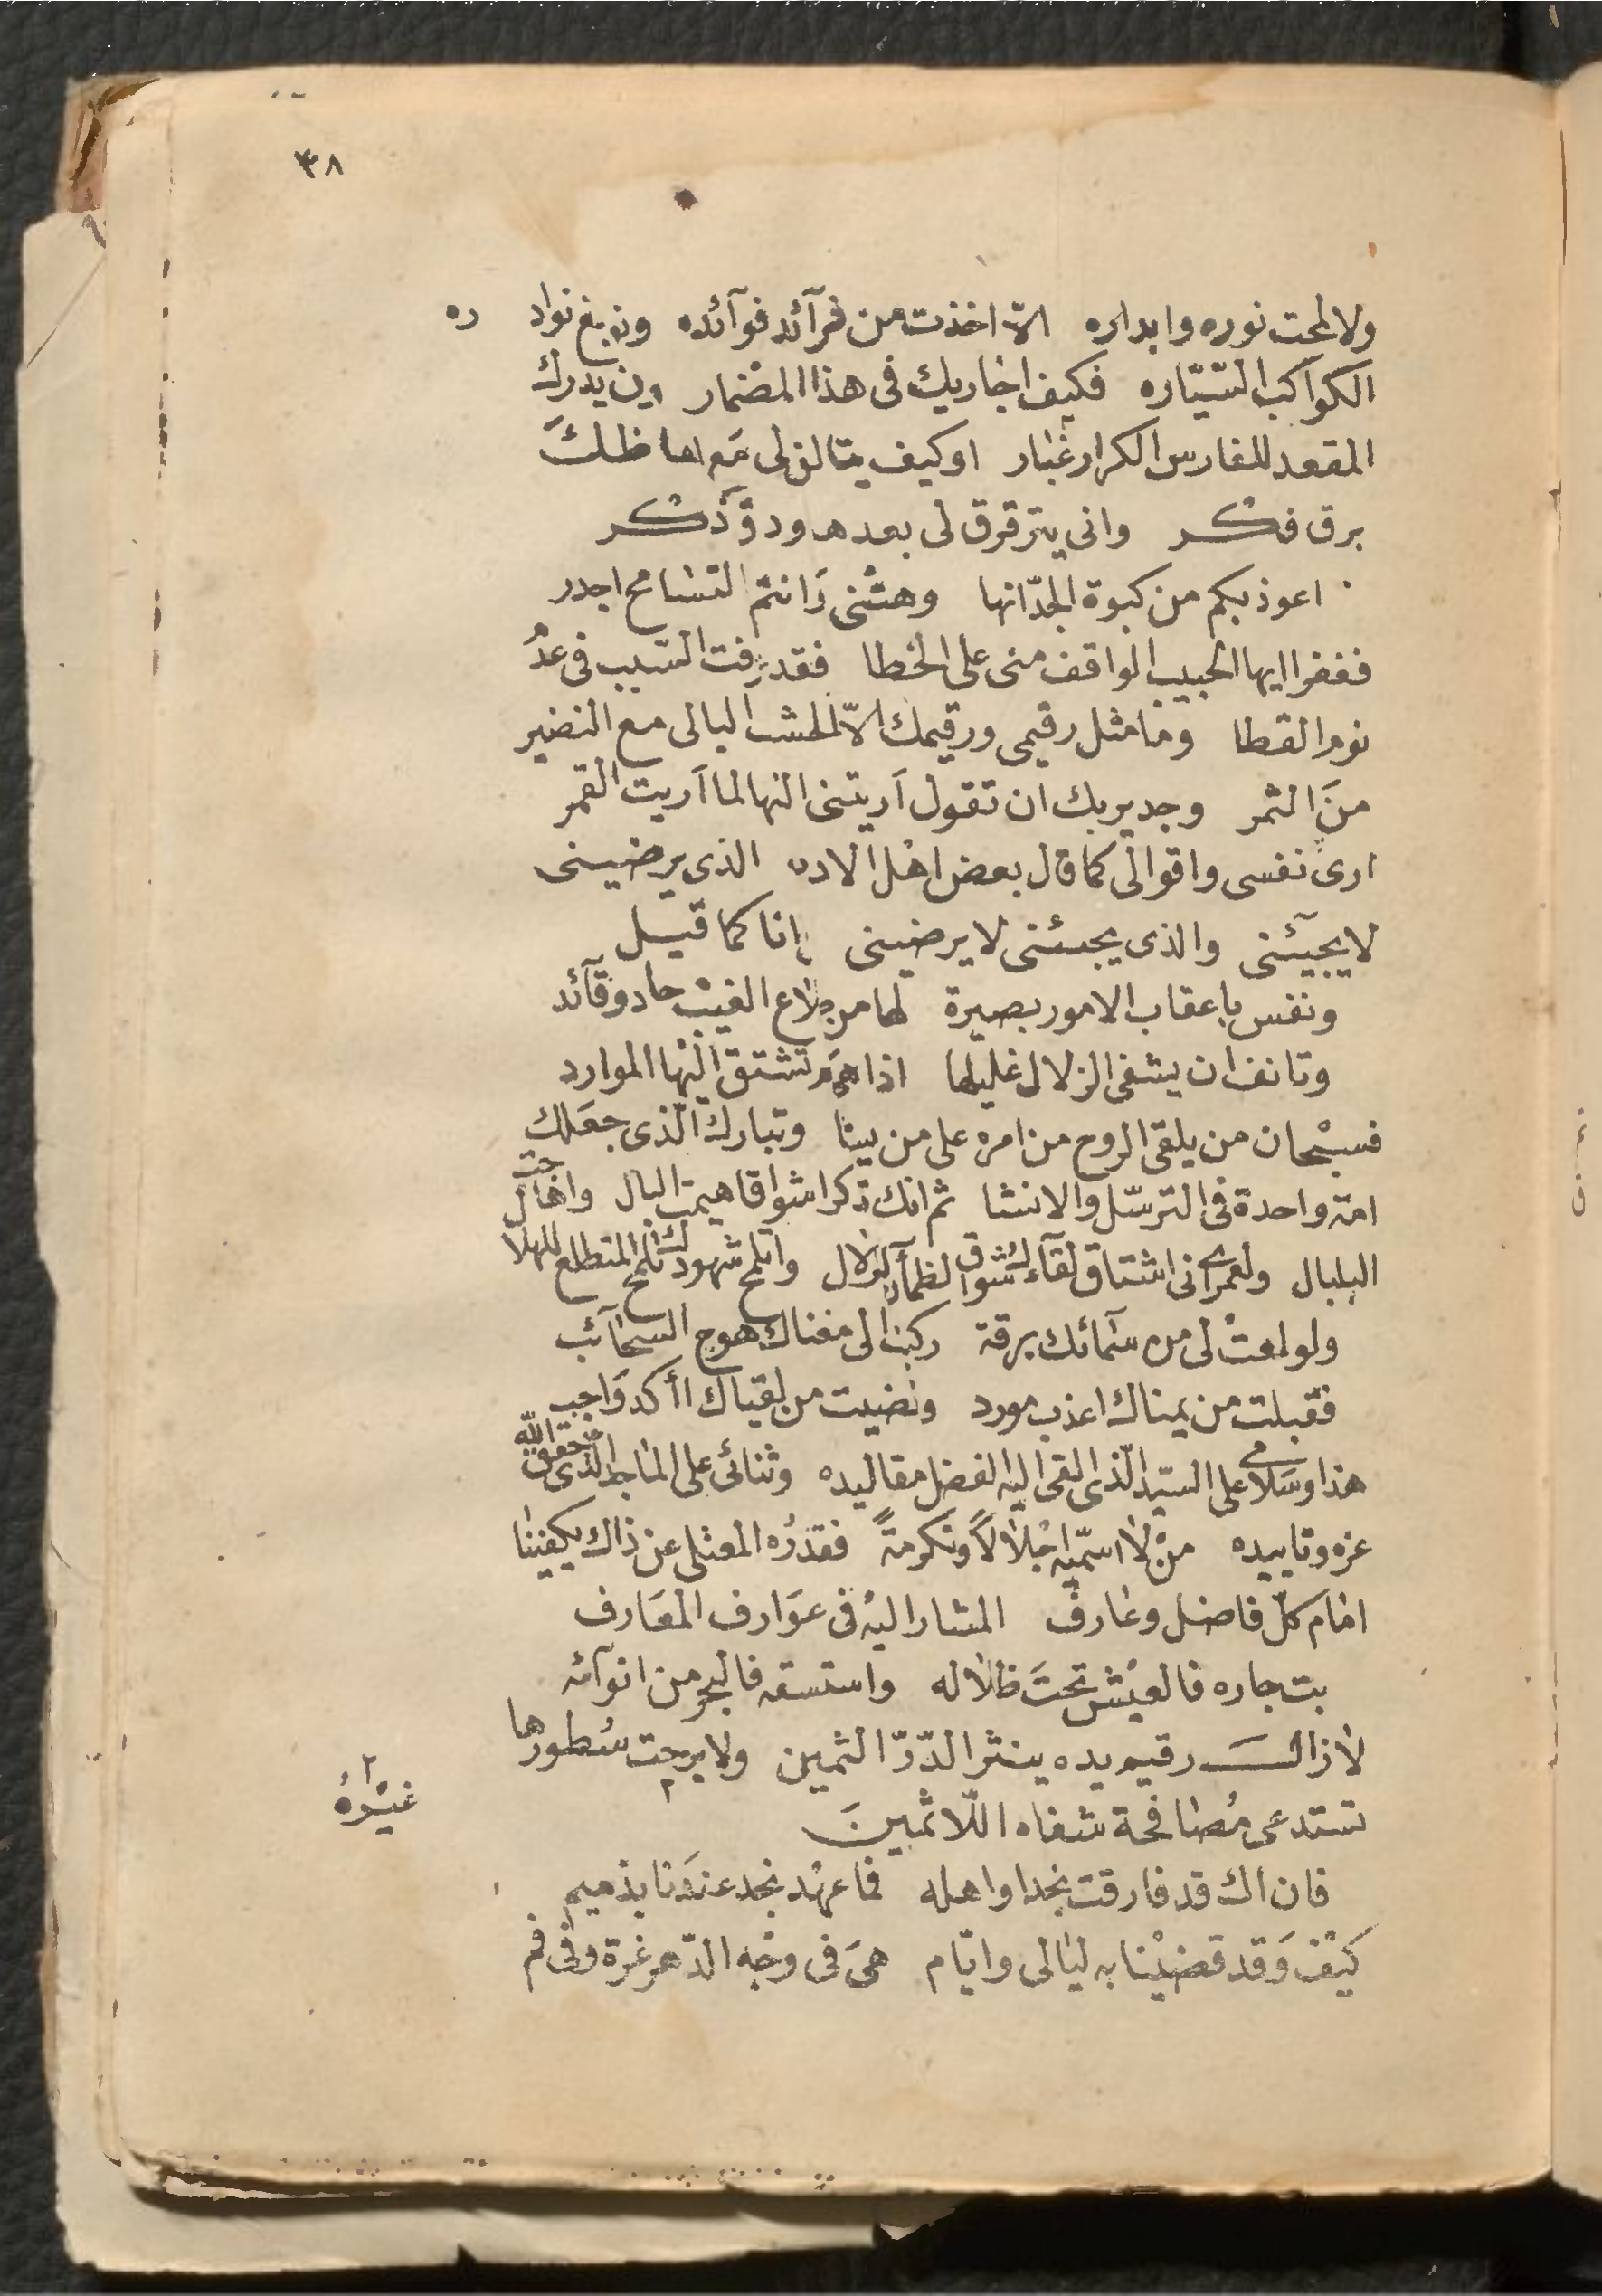 ٣٨
ولا لمحت نوره وابداره الا اخذت من فرآئد فوآئده ونوبغ نواد ره
الكواكب السّيّاره فكيف اجاريك فى هذا المضمار وين يدرك
المقعد للفارس الكرار غبار او كيف يتالق لى مَع
برق فكر وانى يترقرق لى بعد
اعوذ بكم من كبوة الجدّ انها وهتْنى وَانتم التسامح اجدر
فغفرا ايها الحبيب الواقف منى على الخطا فقد فى عدُ
نوم القطا وما مثل رقيمى ورقيمك الّا البالى مع النضير
منَ الثمر وجدير بك ان تقول آريتنى السها لما آريت القمر
ارى نفسى واقوالى كما قال بعض اهل الادب الذى يرضينى
لا يجيئنى والذى يجيئنى لا يرضينى انا كما قيل
ونفس باعقاب الامور بصيرة لها من طلاع الغيب حاد وقآئد
وتانف ان يشفى الزلال غليلها اذا هى لم تشتق اليْها الموارد
فسبْحان من يلقى الروح من امره على من يشا وتبارك الّذى جعَلك
امة واحدة فى الترسّل والانشا ثم انك ذكر اشواقا هيمت البال وهاجت
البلبال ولعمرى انى اشتاق لقآءك شوق الظمآن للزلال والمح شهودك تلمح المتطلع للهلا
ولو لمعتْ لى من سَمائك برقة ركبت الى مغناك هوج السحآئب
فقبلت من يمناك اعذب مورد وقضيت من لقياك أاكد وَاجب
هذا وسَلامى على السيّد الّذى القى اليه الفضل مقاليده وثنائى على الماجد الّذى حقق الله
عزه وتاييده منْ لا اسمّيه اجْلالًا وتكرمةً فقدرُه المعتلى عن ذاك يكفينا
امام كلّ فاضل وعارف المشار اليْه فى عوَارف المعَارف
بت جاره فالعيْش تحتَ ظلاله واستسقه فالبحر من انوآئه
لازالت رقيم يده ينثر الدّرّ الثمين ولا برحت سُطورها
تستدعى مُصافحة شفاه اللّاثمينَ
غيْرهُ
فان اك قد فارقت نجدا واهله فما عهْد نجد عندَنا بذميم
كيْفَ وَقد قضيْنا به ليالى وايّام هىَ فى وجْه الدّهر غرة وفى فم